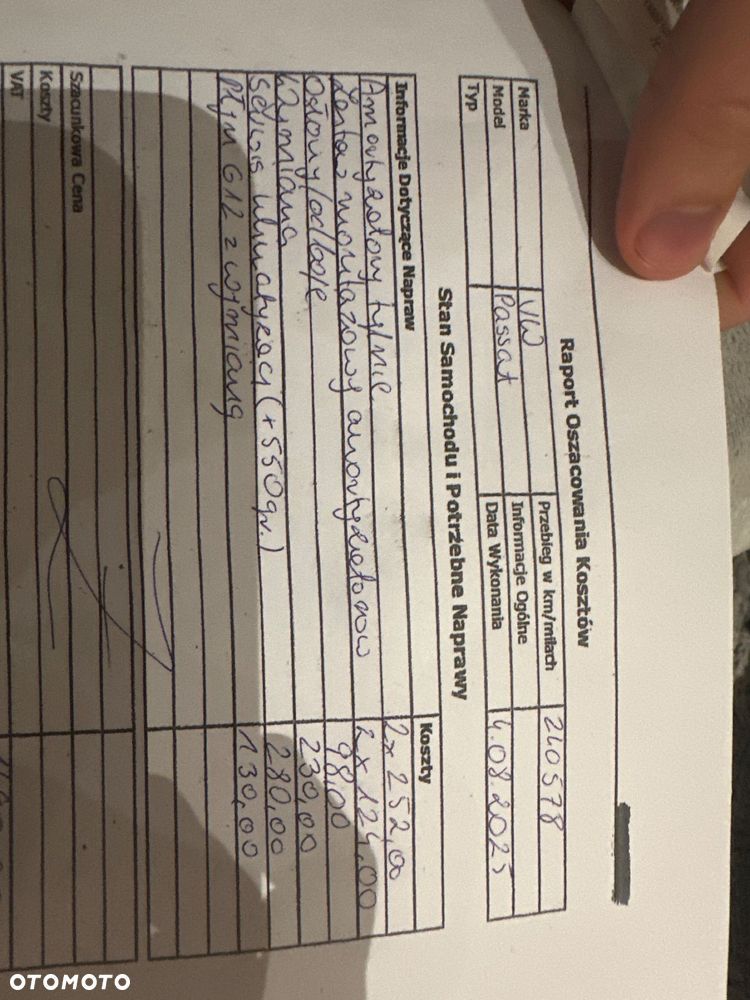 Raport Oszacowania Kosztów
Marka VW Przebieg w km/milach 240578
Model Passat Informacje Ogólne
Typ Data Wykonania 4.08.2025
Stan Samochodu i Potrzebne Naprawy
Informacje Dotyczące Napraw Koszty
Amortyzatory tylnie 2x 252,00
zestaw montażowy amortyzatorów 2x 124,00
osłony/odboje 98,00
wymiana 230,00
Serwis klimatyzacji (+550gr.) 280,00
Płyn G12 z wymianą 130,00
Szacunkowa Cena
Koszty
VAT
OTOMOTO